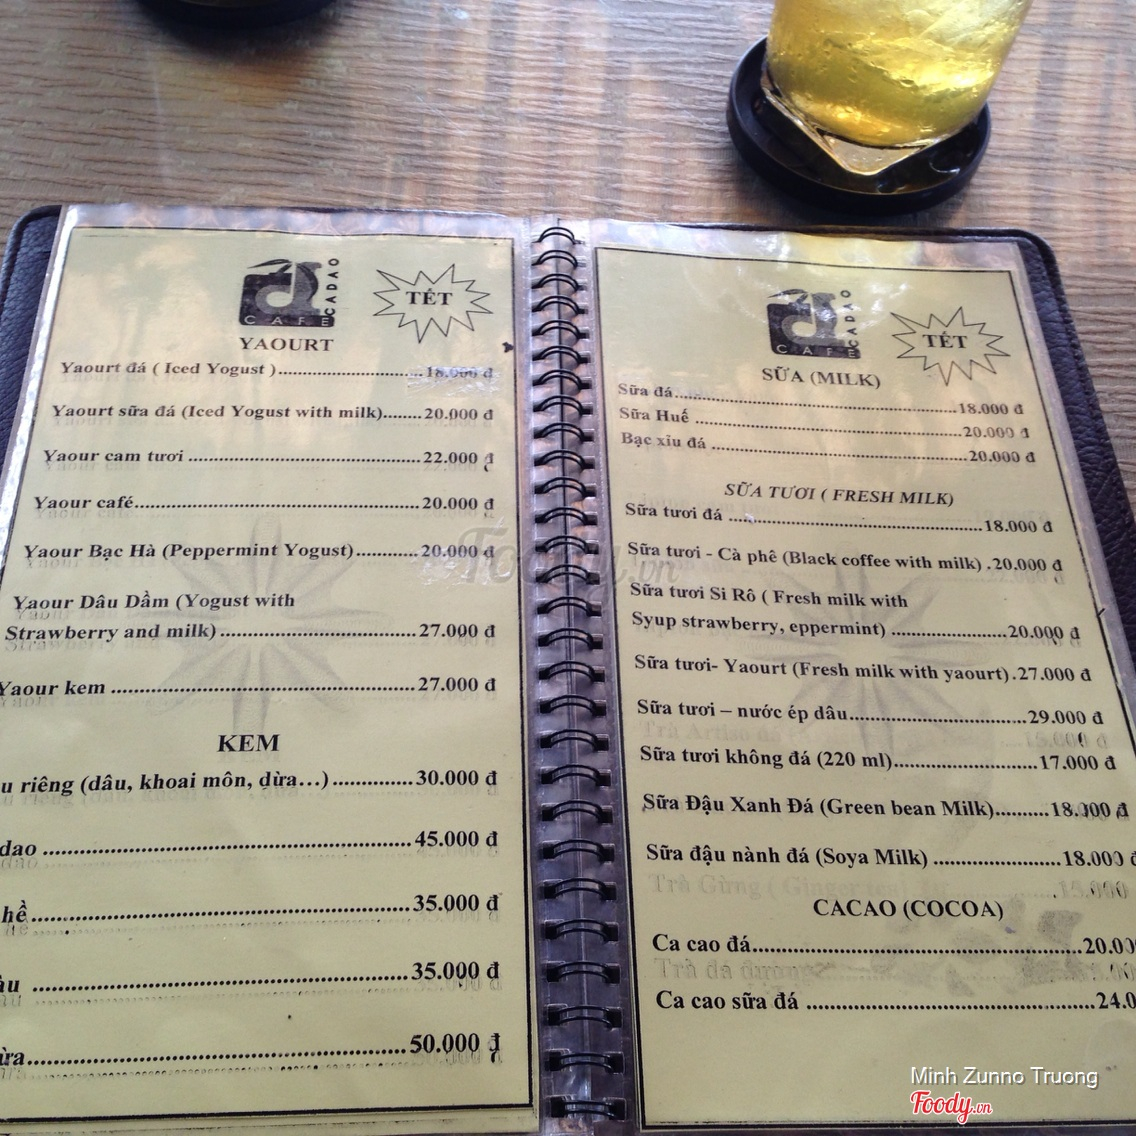 CAFE
CADAO
TẾT
YAOURT
Yaourt đá ( Iced Yogust )....................................18.000 đ
Yaourt sữa đá (Iced Yogust with milk).......20.000 đ
Yaour cam tươi ..........................................22.000 đ
Yaour café....................................................20.000 đ
Yaour Bạc Hà (Peppermint Yogust)...........20.000 đ
Yaour Dâu Dầm (Yogust with
Strawberry and milk) ...................................27.000 đ
Yaour kem ......................................................27.000 đ
KEM
u riêng (dâu, khoai môn, dừa…) ..............30.000 đ
dao ................................................................45.000 đ
hề..................................................................35.000 đ
àu ..................................................................35.000 đ
ừa..................................................................50.000 đ
CAFE
CADAO
TẾT
SỮA (MILK)
Sữa đá....................................................18.000 đ
Sữa Huế .................................................20.000 đ
Bạc xỉu đá ..............................................20.000 đ
SỮA TƯƠI ( FRESH MILK)
Sữa tươi đá ............................................18.000 đ
Sữa tươi - Cà phê (Black coffee with milk) .20.000 đ
Sữa tươi Si Rô ( Fresh milk with
Syup strawberry, eppermint) ....................20.000 đ
Sữa tươi- Yaourt (Fresh milk with yaourt).27.000 đ
Sữa tươi – nước ép dâu..............................29.000 đ
Sữa tươi không đá (220 ml)........................17.000 đ
Sữa Đậu Xanh Đá (Green bean Milk)..........18.000 đ
Sữa đậu nành đá (Soya Milk) .....................18.000 đ
Trà Gừng ( Ginger tea)
CACAO (COCOA)
Ca cao đá.......................................................20.00
Trà đá đường
Ca cao sữa đá ................................................24.0
Foody.vn
Minh Zunno Truong
Foody.vn